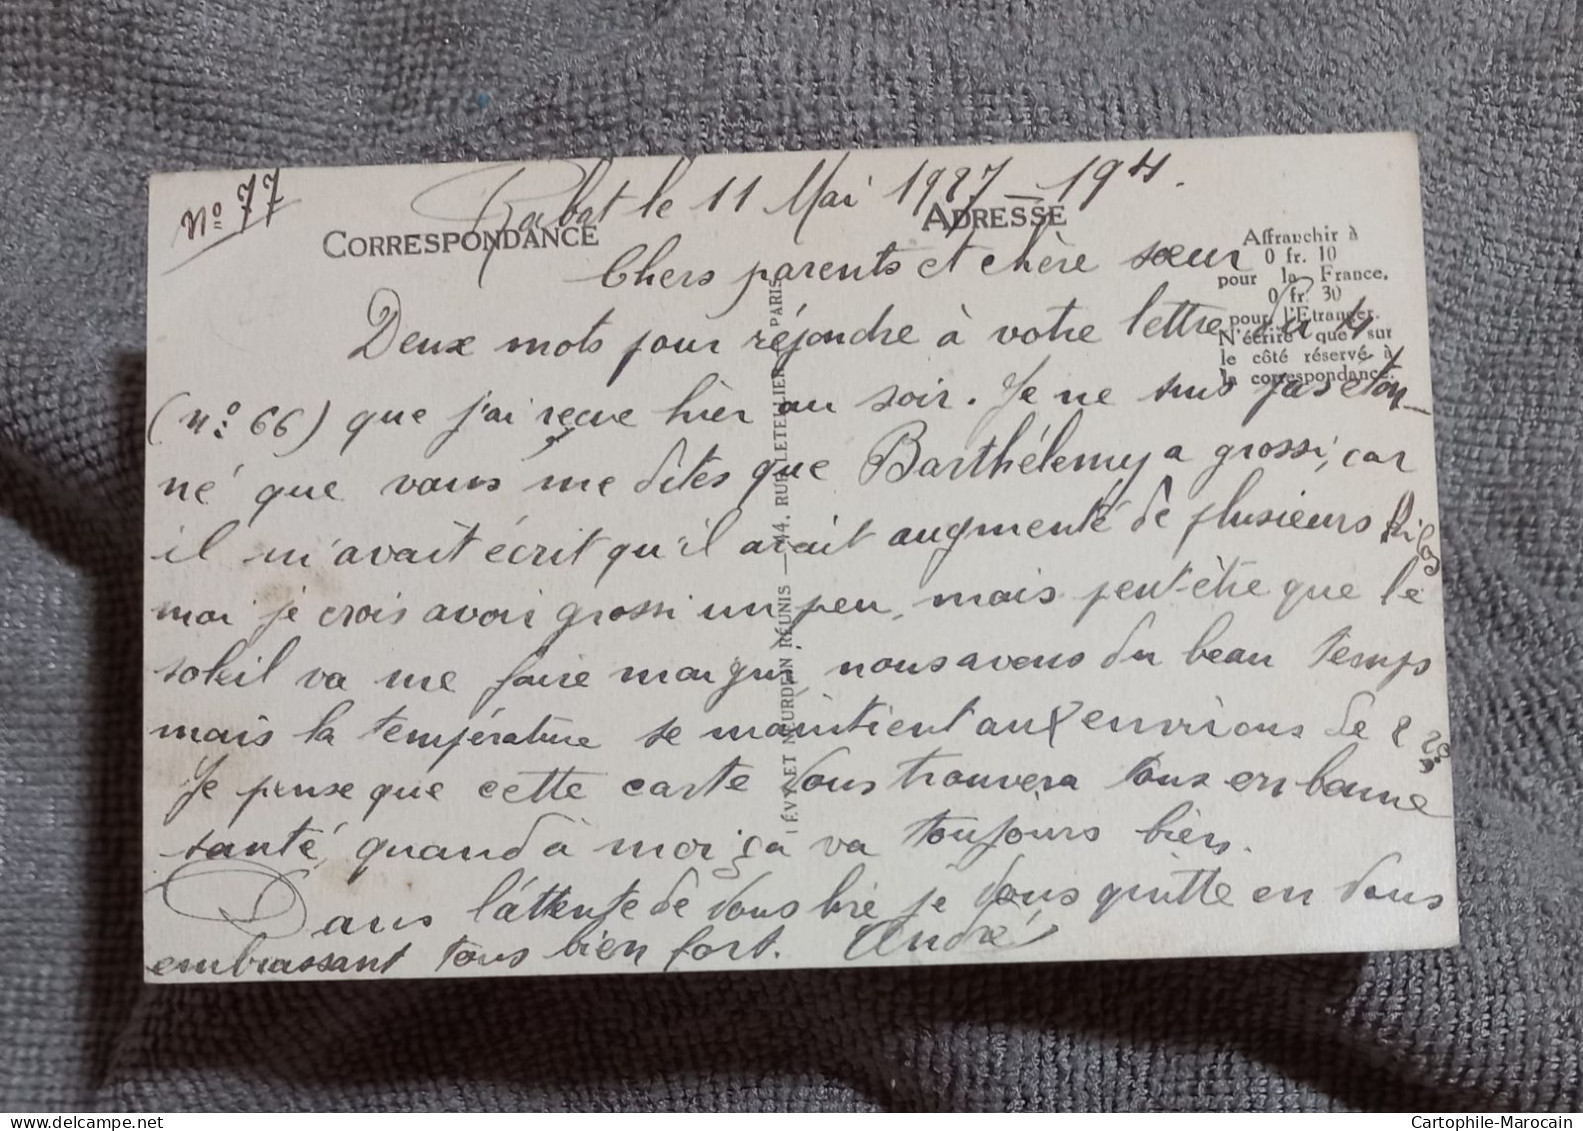 N° 77
Rabat le 11 Mai 1927 – 194.
CORRESPONDANCE
ADRESSE
Affranchir à
0 fr. 10
pour la France,
0 fr. 30
pour l'Etranger.
N'écrire que sur
le côté réservé à
la correspondance.
Chers parents et chère sœur
Deux mots pour répondre à votre lettre du 4
(n°: 66) que j'ai reçue hier au soir. Je ne suis pas éton-
né que vous me dites que Barthélemy a grossi, car
il m'avait écrit qu'il avait augmenté de plusieurs kilos
moi je crois avoir grossi un peu, mais peut-être que le
soleil va me faire maigrir, nous avons du beau temps
mais la température se maintient aux environs de
Je pense que cette carte vous trouvera tous en bonne
santé, quand à moi ça va toujours bien.
Dans l'attente de vous lire je vous quitte en vous
embrassant tous bien fort. André
LÉVY ET NEURDEIN RÉUNIS — 44, RUE LETELLIER, PARIS
delcampe.net
Cartophile-Marocain